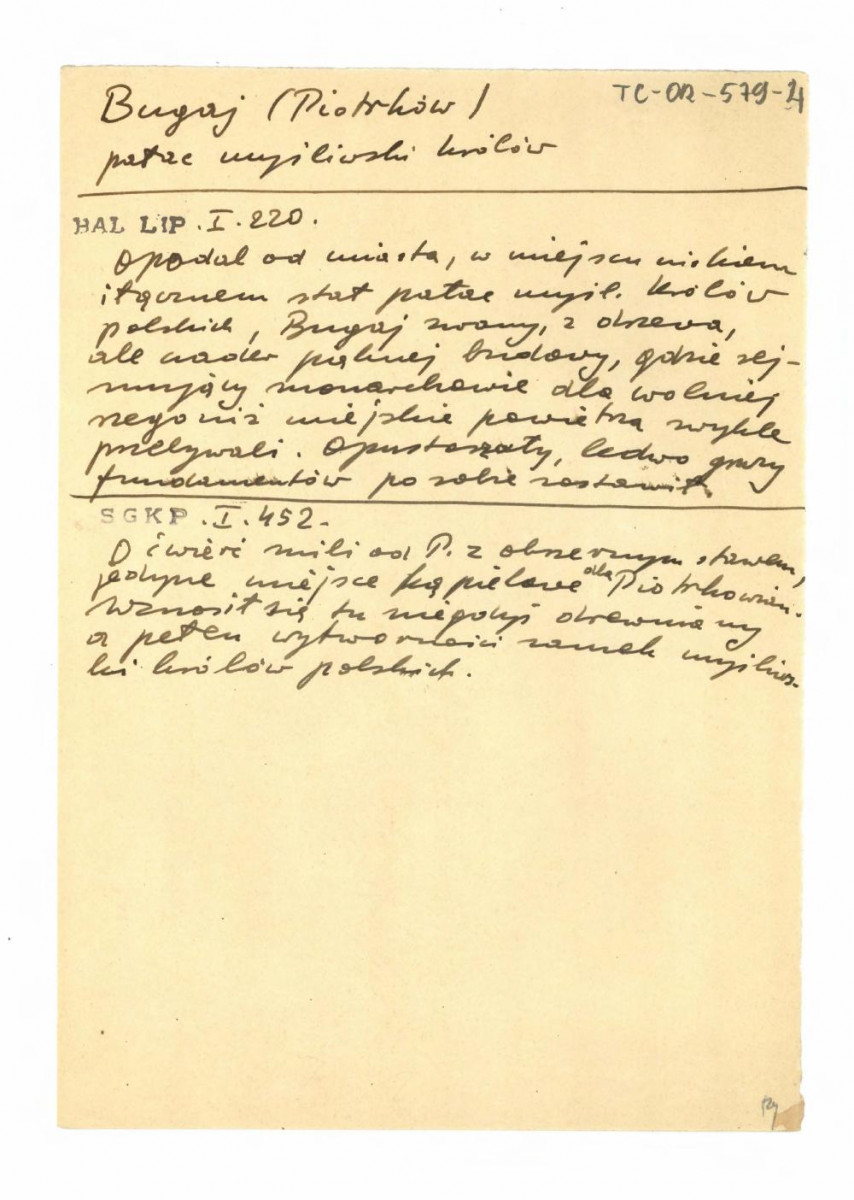 TC-OR-579-4
Bugaj (Piotrków)
pałac myśliwski królów
BAL LIP . I . 220 .
Opodal od miasta, w miejscu niskiem
i łącznem stał pałac myśl. królów
polskich, Bugaj zwany, z drzewa,
ale nader pięknej budowy, gdzie sej-
mujący monarchowie dla wolniej
szego niż miejskie powietrza zwykle
przebywali. Opustoszały, ledwo gruzy
fundamentów po sobie zostawił.
SGKP . I . 452 -
O ćwierć mili od P. z obszernym stawem,
jedyne miejsce kąpielowe dla Piotrkowian.
Wznosił się tu niegdyś drewniany
a pełen wytworności zamek myśliws-
ki królów polskich.